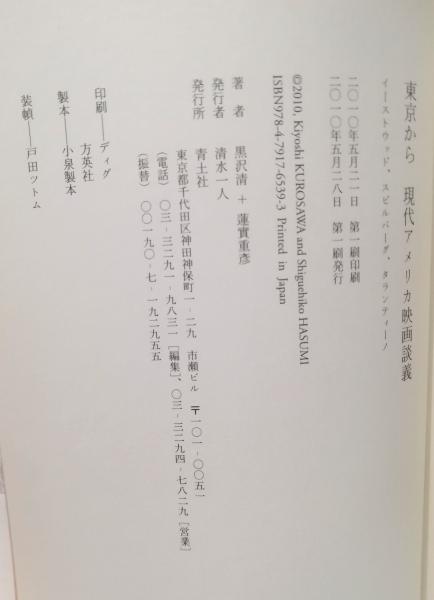 東京から 現代アメリカ映画談義
イーストウッド、スピルバーグ、タランティーノ
二〇一〇年五月二一日 第一刷印刷
二〇一〇年五月二八日 第一刷発行
©2010, Kiyoshi KUROSAWA and Shiguehiko HASUMI
ISBN978-4-7917-6539-3 Printed in Japan
著 者 黒沢清+蓮實重彦
発行者 清水一人
発行所 青土社
東京都千代田区神田神保町一-二九 市瀬ビル 〒一〇一-〇〇五一
(電話) 〇三-三二九一-九八三一[編集]、〇三-三二九四-七八二九[営業]
(振替) 〇〇一九〇-七-一九二九五五
印刷――ディグ
方英社
製本――小泉製本
装幀――戸田ツトム